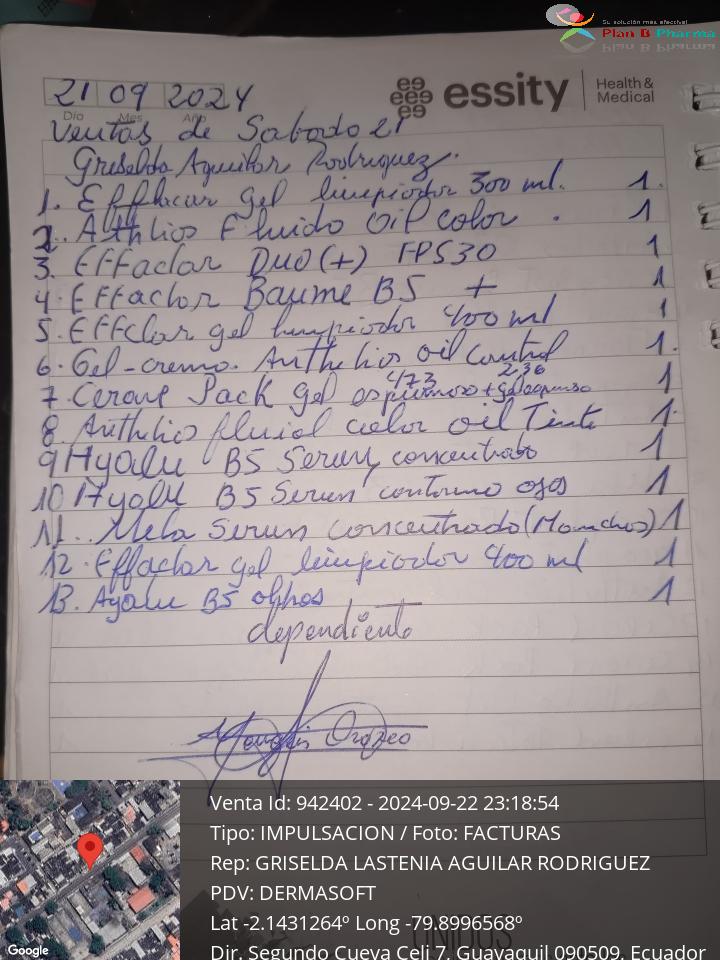 Su solución más efectiva!
Plan B Pharma
essity
Health &
Medical
21 09 2024
Día Mes Año
Ventas de Sabado 21
Griselda Aguilar Rodriguez.
1. Efflacar gel limpiador 300 ml. 1.
2. Athlios Fluido oil color . 1
3. Effaclar Duo(+) FPS30 1
4. Effaclor Baume B5 + 1
5. Effclar gel limpiador 400 ml 1
6. Gel-crema. Anthelios oil Control 1.
7. Cerave Pack Gel espumoso 473 + gel espumoso 236 1
8. Anthelios fluid color oil Tinte 1.
9 Hyalu B5 Serum concentrado 1
10 Hyalu B5 Serum contorno ojos 1
11.. Mela Serum concentrado (Manchas) 1
12. Effaclar gel limpiador 400 ml 1
13. Ayalu B5 ohhos 1
dependiente
Orozco
Venta Id: 942402 - 2024-09-22 23:18:54
Tipo: IMPULSACION / Foto: FACTURAS
Rep: GRISELDA LASTENIA AGUILAR RODRIGUEZ
PDV: DERMASOFT
Lat -2.1431264º Long -79.8996568º
Dir. Segundo Cueva Celi 7, Guayaquil 090509, Ecuador
Google